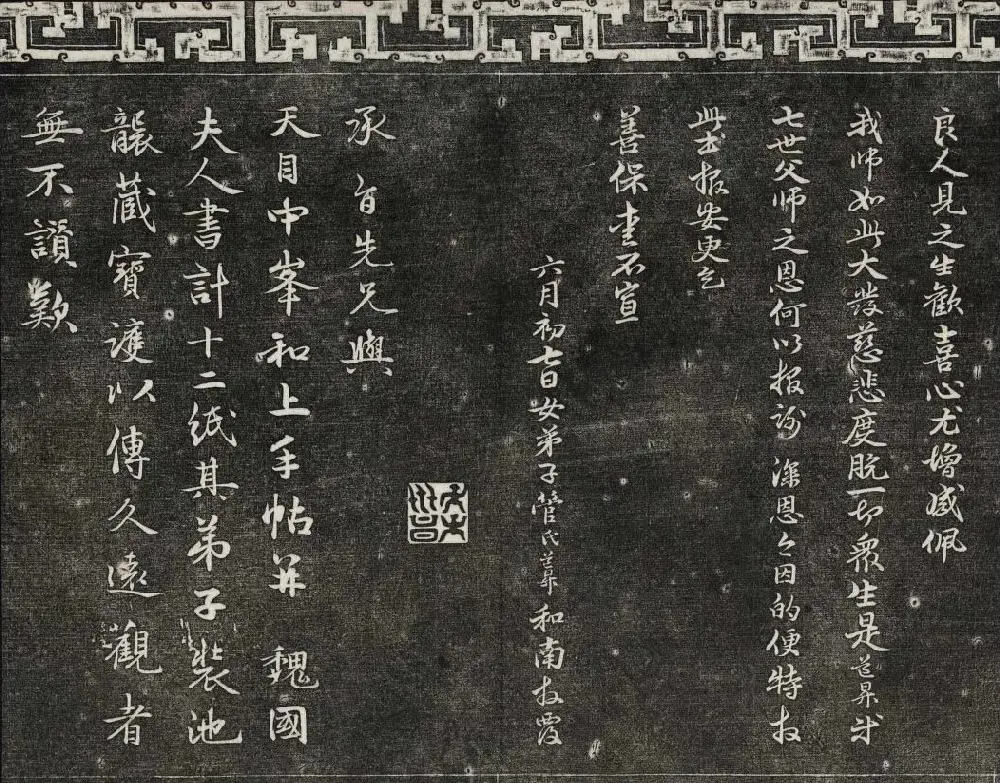 良人見之生歡喜心尤增感佩
我師如此大發慈悲度脫一切衆生是道昇
七世父師之恩何以報謝 深恩今因的便特
此報安更乞
善保重不宣
六月初七日女弟子管氏道昇和南拜覆
承 旨先兄與
天目中峯和上手帖并 魏國
夫人書計十二紙其弟子裝池
襲藏寶護以傳久遠觀者
無不讚歎